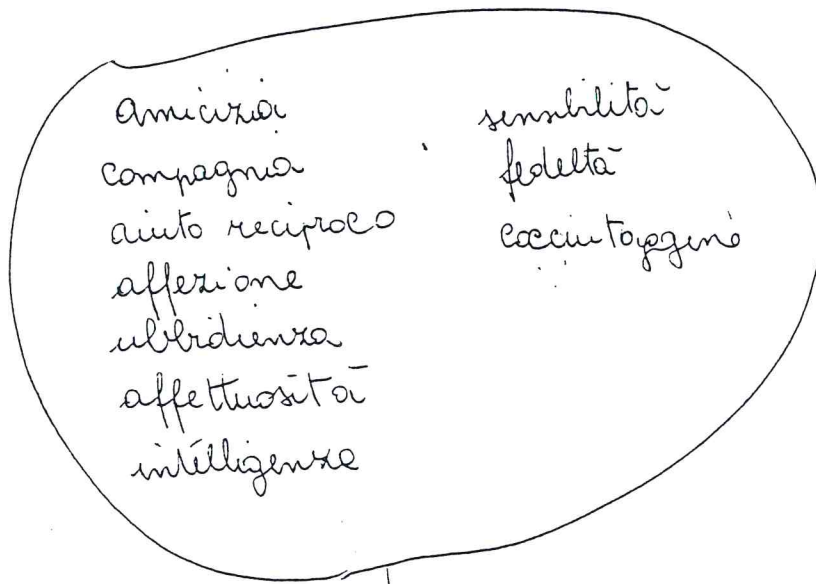 amicizia
compagnia
aiuto reciproco
affezione
ubbidienza
affettuosità
intelligenza
sensibilità
fedeltà